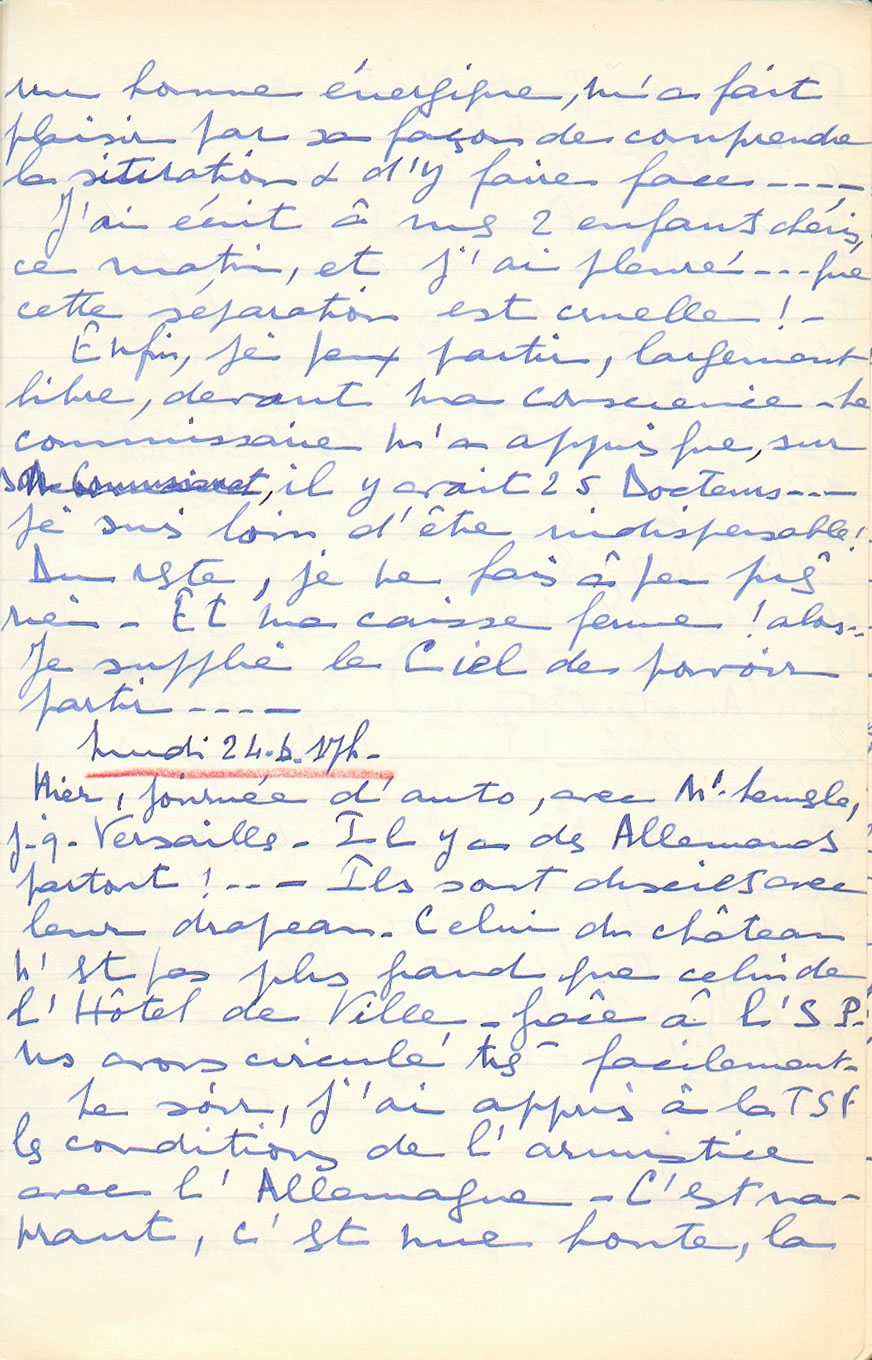 un homme énergique, m'a fait
plaisir par sa façon de comprendre
la situation & d'y faire face ----
J'ai écrit à mes 2 enfants chéris,
ce matin, et j'ai pleuré --- que
cette séparation est cruelle ! -
Enfin, je peux partir, largement
libre, devant ma conscience - Le
commissaire m'a appris que, sur
son Commissariat, il y avait 25 Docteurs ---
je suis loin d'être indispensable !
Du reste, je ne fais à peu près
rien - Et ma caisse ferme ! alors --
Je supplie le Ciel de pouvoir
partir ----
Lundi 24.6. 17h -
Hier, journée d'auto, avec Mr.
j.q. Versailles - Il y a des Allemands
partout ! --- Ils sont discrets avec
leur drapeau - Celui du château
n'est pas plus grand que celui de
l'Hôtel de Ville - grâce à l'S P.
ns avons circulé très facilement -
Le soir, j'ai appris à la TSF
les conditions de l'armistice
avec l'Allemagne - C'est na-
vrant, c'est une honte, la